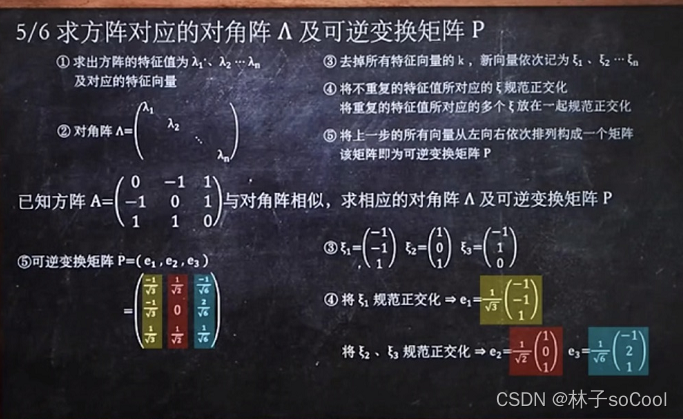 5/6 求方阵对应的对角阵 Λ 及可逆变换矩阵 P
① 求出方阵的特征值为 λ₁、λ₂ ⋯ λₙ
及对应的特征向量
② 对角阵 Λ=(λ₁ λ₂ ⋱ λₙ)
③ 去掉所有特征向量的 k ，新向量依次记为 ξ₁、ξ₂ ⋯ ξₙ
④ 将不重复的特征值所对应的 ξ 规范正交化
将重复的特征值所对应的多个 ξ 放在一起规范正交化
⑤ 将上一步的所有向量从左向右依次排列构成一个矩阵
该矩阵即为可逆变换矩阵 P
已知方阵 A=(0 −1 1; −1 0 1; 1 1 0)与对角阵相似，求相应的对角阵 Λ 及可逆变换矩阵 P
⑤可逆变换矩阵 P=( e₁ , e₂ , e₃ )
=(−1/√3 1/√2 −1/√6; −1/√3 0 2/√6; 1/√3 1/√2 1/√6)
③ ξ₁=(−1 −1 1) ξ₂=(1 0 1) ξ₃=(−1 1 0)
④ 将 ξ₁ 规范正交化 ⇒ e₁=1/√3(−1 −1 1)
将 ξ₂、ξ₃ 规范正交化 ⇒ e₂=1/√2(1 0 1) e₃=1/√6(−1 2 1)
CSDN @林子soCool